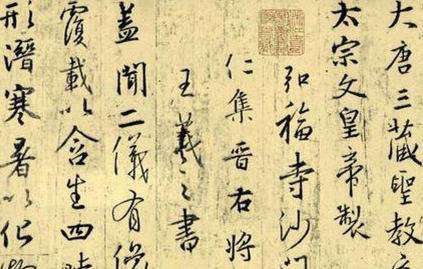 大唐三藏聖教
太宗文皇帝製
弘福寺沙門
仁集晉右將
王羲之書
蓋聞二儀有
覆載以含生四時
形潛寒暑以化物